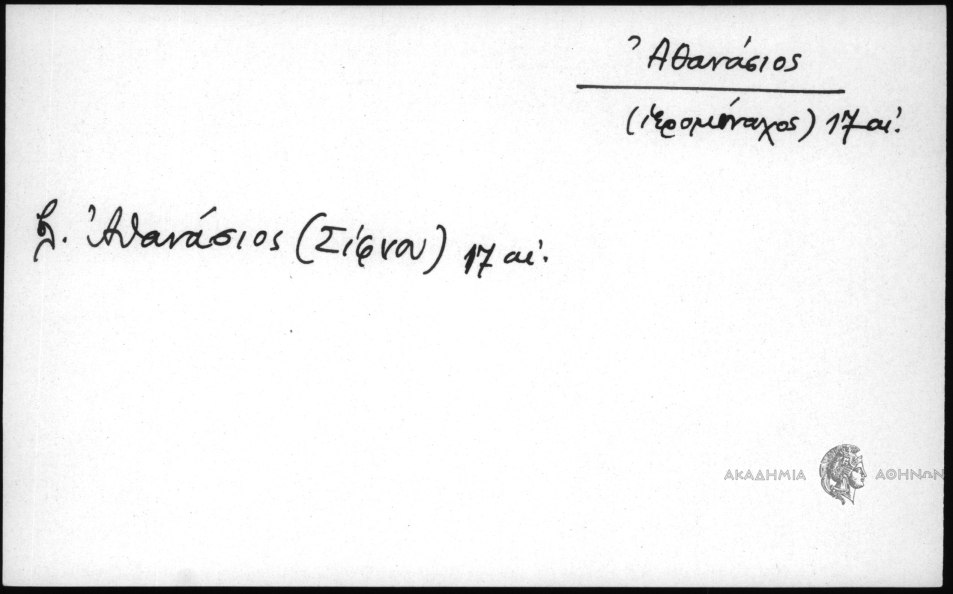 Ἀθανάσιος
(ἱερομόναχος) 17 αἰ.
βλ. Ἀθανάσιος (Σίφνου) 17 αἰ.
ΑΚΑΔΗΜΙΑ ΑΘΗΝΩΝ